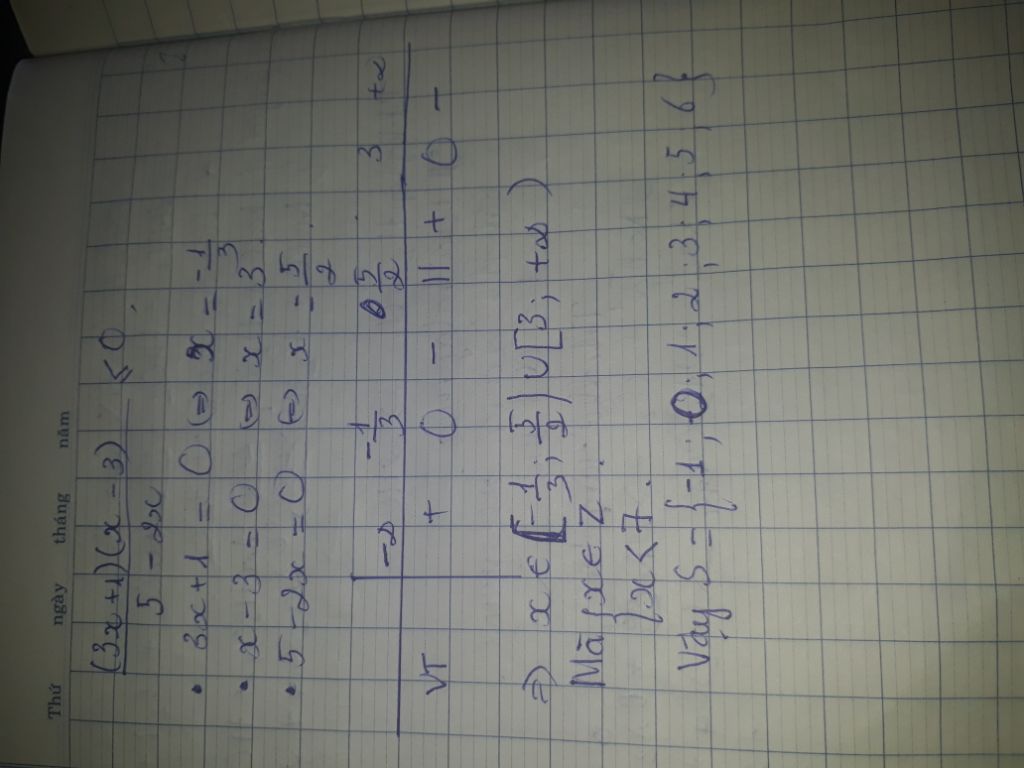 Thứ ngày tháng năm
(3x+1)(x-3)/(5-2x) ≤ 0.
• 3x+1 = 0 (=) x = -1/3
• x-3 = 0 (=) x = 3
• 5-2x = 0 (=) x = 5/2
-∞ -1/3 5/2 3 +∞
VT + 0 - || + 0 -
=) x ∈ [-1/3; 5/2) ∪ [3; +∞)
Mà { x ∈ Z
x < 7.
Vậy S = {-1; 0; 1; 2; 3; 4; 5; 6}